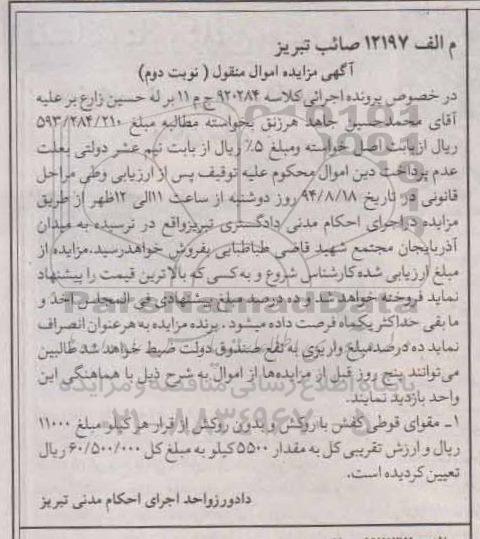 م الف ۱۲۱۹۷ صائب تبریز
آگهی مزایده اموال منقول ( نوبت دوم)
در خصوص پرونده اجرائی کلاسه ۹۲۰۲۸۴ ج م ۱۱ بر له حسین زارع بر علیه
آقای محمدحسین جاهد هرزنق بخواسته مطالبه مبلغ ۵۹۳/۲۸۴/۲۱۰
ریال ازبابت اصل خواسته ومبلغ ۵٪ ریال از بابت نیم عشر دولتی بعلت
عدم پرداخت دین اموال محکوم علیه توقیف پس از ارزیابی وطی مراحل
قانونی در تاریخ ۹۴/۸/۱۸ روز دوشنبه از ساعت ۱۱الی ۱۲ظهر از طریق
مزایده در اجرای احکام مدنی دادگستری تبریزواقع در نرسیده به میدان
آذربایجان مجتمع شهید قاضی طباطبایی بفروش خواهدرسید.مزایده از
مبلغ ارزیابی شده کارشناس شروع و به کسی که بالاترین قیمت را پیشنهاد
نماید فروخته خواهد شد و ده درصد مبلغ پیشنهادی فی المجلس اخذ و
ما بقی حداکثر یکماه فرصت داده میشود . برنده مزایده به هر عنوان انصراف
نماید ده درصدمبلغ واریزی به نفع صندوق دولت ضبط خواهد شد طالبین
می‌توانند پنج روز قبل از مزایده‌ها از اموال به شرح ذیل با هماهنگی این
واحد بازدید نمایند.
۱ـ مقوای قوطی کفش با روکش و بدون روکش از قرار هر کیلو مبلغ ۱۱۰۰۰
ریال و ارزش تقریبی کل به مقدار ۵۵۰۰ کیلو به مبلغ کل ۶۰/۵۰۰/۰۰۰ ریال
تعیین گردیده است.
دادورزواحد اجرای احکام مدنی تبریز
ParsNamadData
پایگاه اطلاع رسانی مناقصه و مزایده
۰۲۱-۸۸۳۴۹۶۷۰-۵